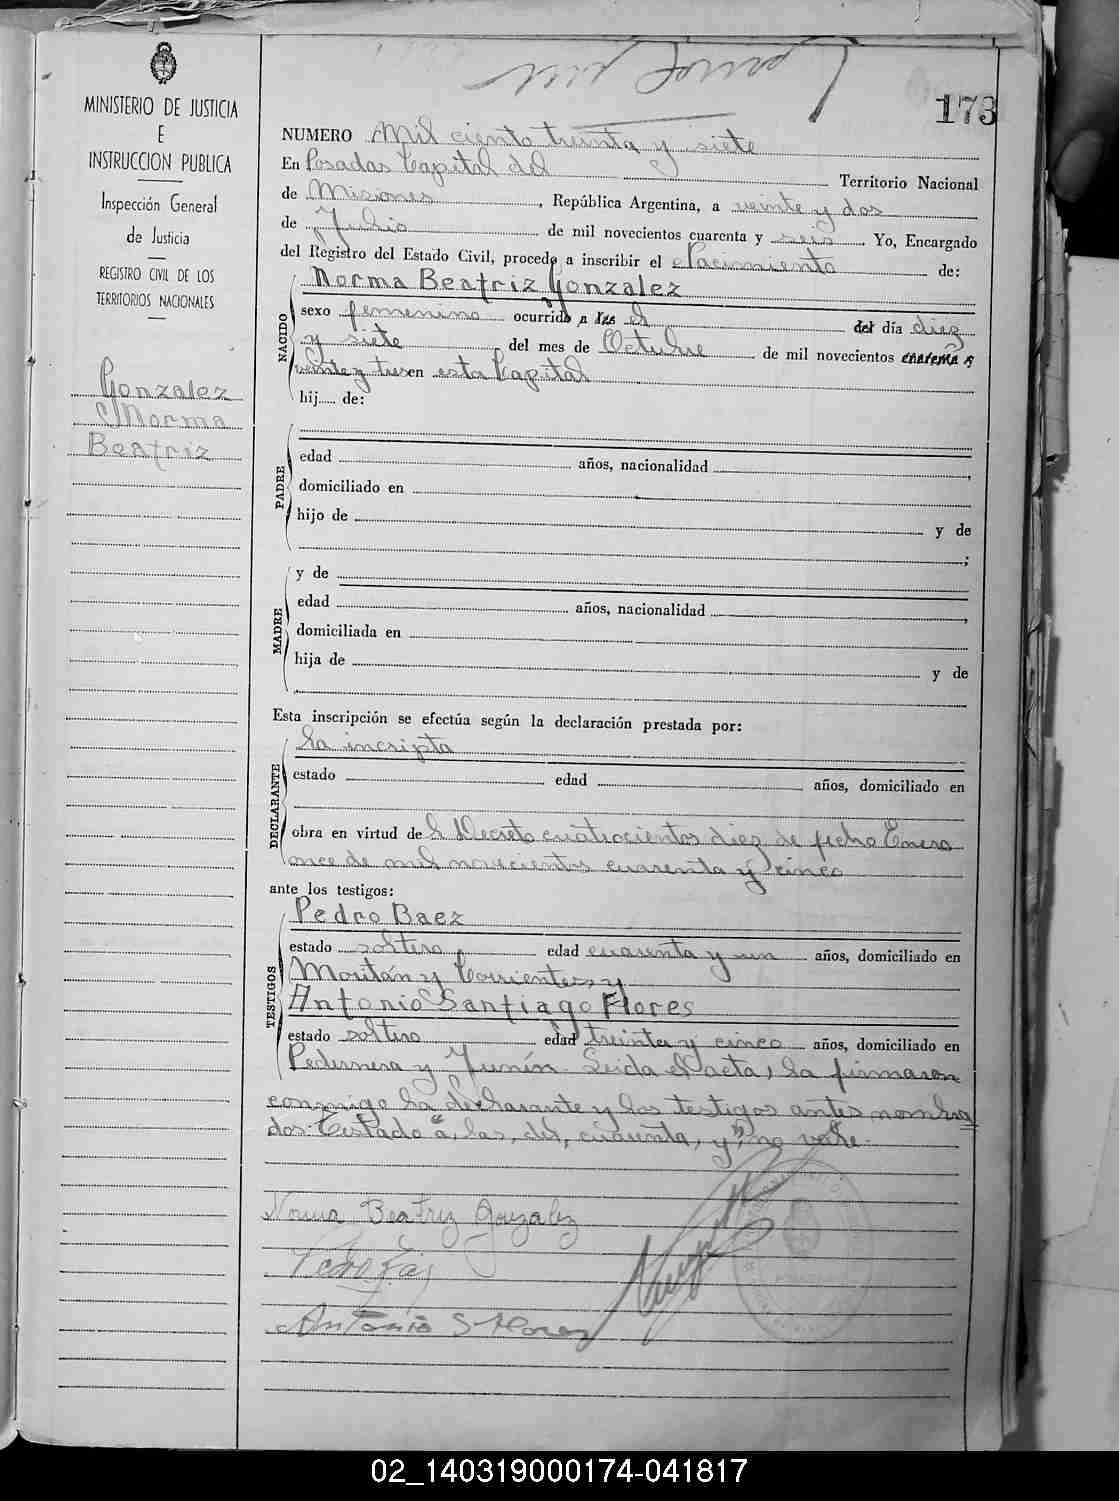 173
MINISTERIO DE JUSTICIA
E
INSTRUCCION PUBLICA
Inspección General
de Justicia
REGISTRO CIVIL DE LOS
TERRITORIOS NACIONALES
Gonzalez
Norma
Beatriz
NUMERO Mil ciento treinta y siete
En Posadas Capital del Territorio Nacional
de Misiones, República Argentina, a veinte y dos
de Julio de mil novecientos cuarenta y seis. Yo, Encargado
del Registro del Estado Civil, procedo a inscribir el Nacimiento de:
NACIDO
Norma Beatriz Gonzalez
sexo femenino ocurrido a las el del día diez
y siete del mes de Octubre de mil novecientos cuarenta y
veinte y tres en esta Capital
hij..... de:
PADRE
edad años, nacionalidad ,
domiciliado en
hijo de y de
;
MADRE
y de
edad años, nacionalidad ,
domiciliada en
hija de y de
Esta inscripción se efectúa según la declaración prestada por:
DECLARANTE
la incripta
estado edad años, domiciliado en
obra en virtud de l Decreto cuatrocientos diez de fecha Enero
once de mil novecientos cuarenta y cinco
ante los testigos:
TESTIGOS
Pedro Baez
estado soltero edad cuarenta y un años, domiciliado en
y Corrientes, y
Antonio Santiago Flores
estado soltero edad treinta y cinco años, domiciliado en
Pedernera y Junín. Leida el acta, la firmaron
conmigo la declarante y los testigos antes nombra
dos. Testado "a, las, del, cuarenta, y", no vale.
Norma Beatriz Gonzalez
Antonio S Flores
02_140319000174-041817